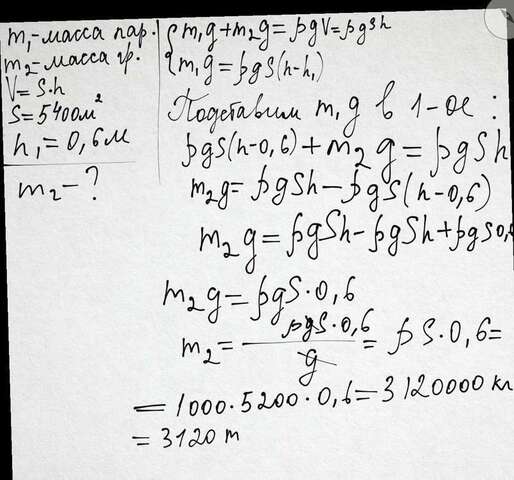 m₁-масса пар.
m₂-масса гр.
V=S·h
S=5400м²
h₁=0,6м
m₂-?
{m₁g+m₂g=ρgV=ρgSh
{m₁g=ρgS(h-h₁)
Подставим m₁g в 1-ое:
ρgS(h-0,6)+m₂g=ρgSh
m₂g=ρgSh-ρgS(h-0,6)
m₂g=ρgSh-ρgSh+ρgS0,
m₂g=ρgS·0,6
m₂=ρgS·0,6/g=ρS·0,6=
=1000·5200·0,6=3120000 кг
=3120 т